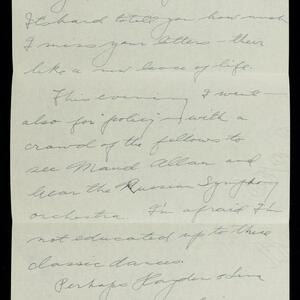 It's hard to tell you how much
I miss your letters - their
like a new lease of life.
This evening I went -
also for "policy" - with a
crowd of the fellows to
see Maud Allan and
hear the Russian Symphony
orchestra. I'm afraid I'm
not educated up to these
classic dances.
Perhaps Hayden &